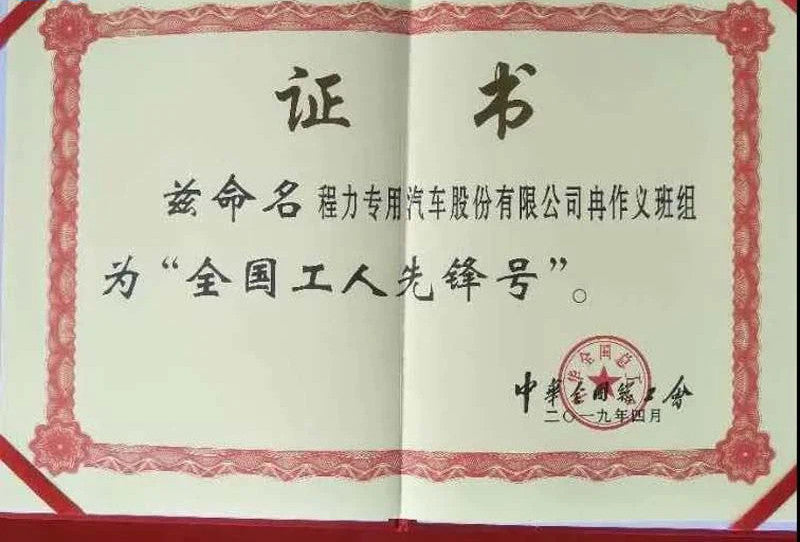 证书
兹命名程力专用汽车股份有限公司冉作义班组
为“全国工人先锋号”。
中华全国总工会
二〇一九年四月